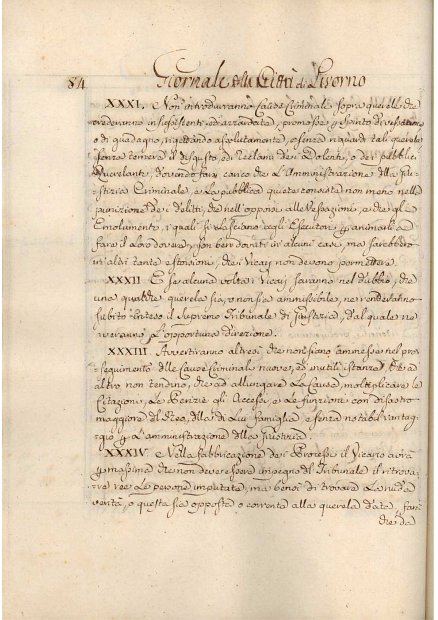 84 Giornale della Città di Livorno
XXXI. Non introdurranno Cause Criminali sopra querele che
crederanno insussistenti, ed azzardate, promosse per spirito di vessazione
o di guadagno, rigettando assolutamente, e senza riguardi tali querele
senza temere il disgusto, o i Reclami dei Dolenti, o dei pubblici
Querelanti, dovendo farsi carico che l'Amministrazione della Giu-
stizia Criminale, e la pubblica quiete consista non meno nella
punizione dei delitti, che nell'opporsi alle Vessazioni, e che gl'
Emolumenti, i quali si lasciano agli Esecutori per animarli a
fare il loro dovere, son ben dovuti in alcuni casi, ma sarebbero
in altri tante estorsioni, che i Vicarj non devono permettere.
XXXII E se alcuna volta i Vicarj saranno nel dubbio, che
una qualche querela sia, o non sia ammissibile, ne renderanno
subito inteso il Supremo Tribunale di Giustizia, dal quale ne
averanno l'opportuna direzione.
XXXIII Avvertiranno altresì che non siano ammesse nel pro-
seguimento delle Cause Criminali nuove, ed inutili istanze, che a
altro non tendino, che ad allungare la Causa, moltiplicare le
Citazioni, le Perizie gli Accessi, e le funzioni con disastro
maggiore del Reo, della di Lui famiglia, e senza notabil vantag-
gio per l'amministrazione della Giustizia.
XXXIV. E Nella fabbricazione dei Processi il Vicario avrà
per massima che non deve essere impegno di Tribunale il ritrova-
re ree le persone imputate, ma bensì di trovare la nuda
verità, o questa sia opposta o coerente alla querela data,
che da